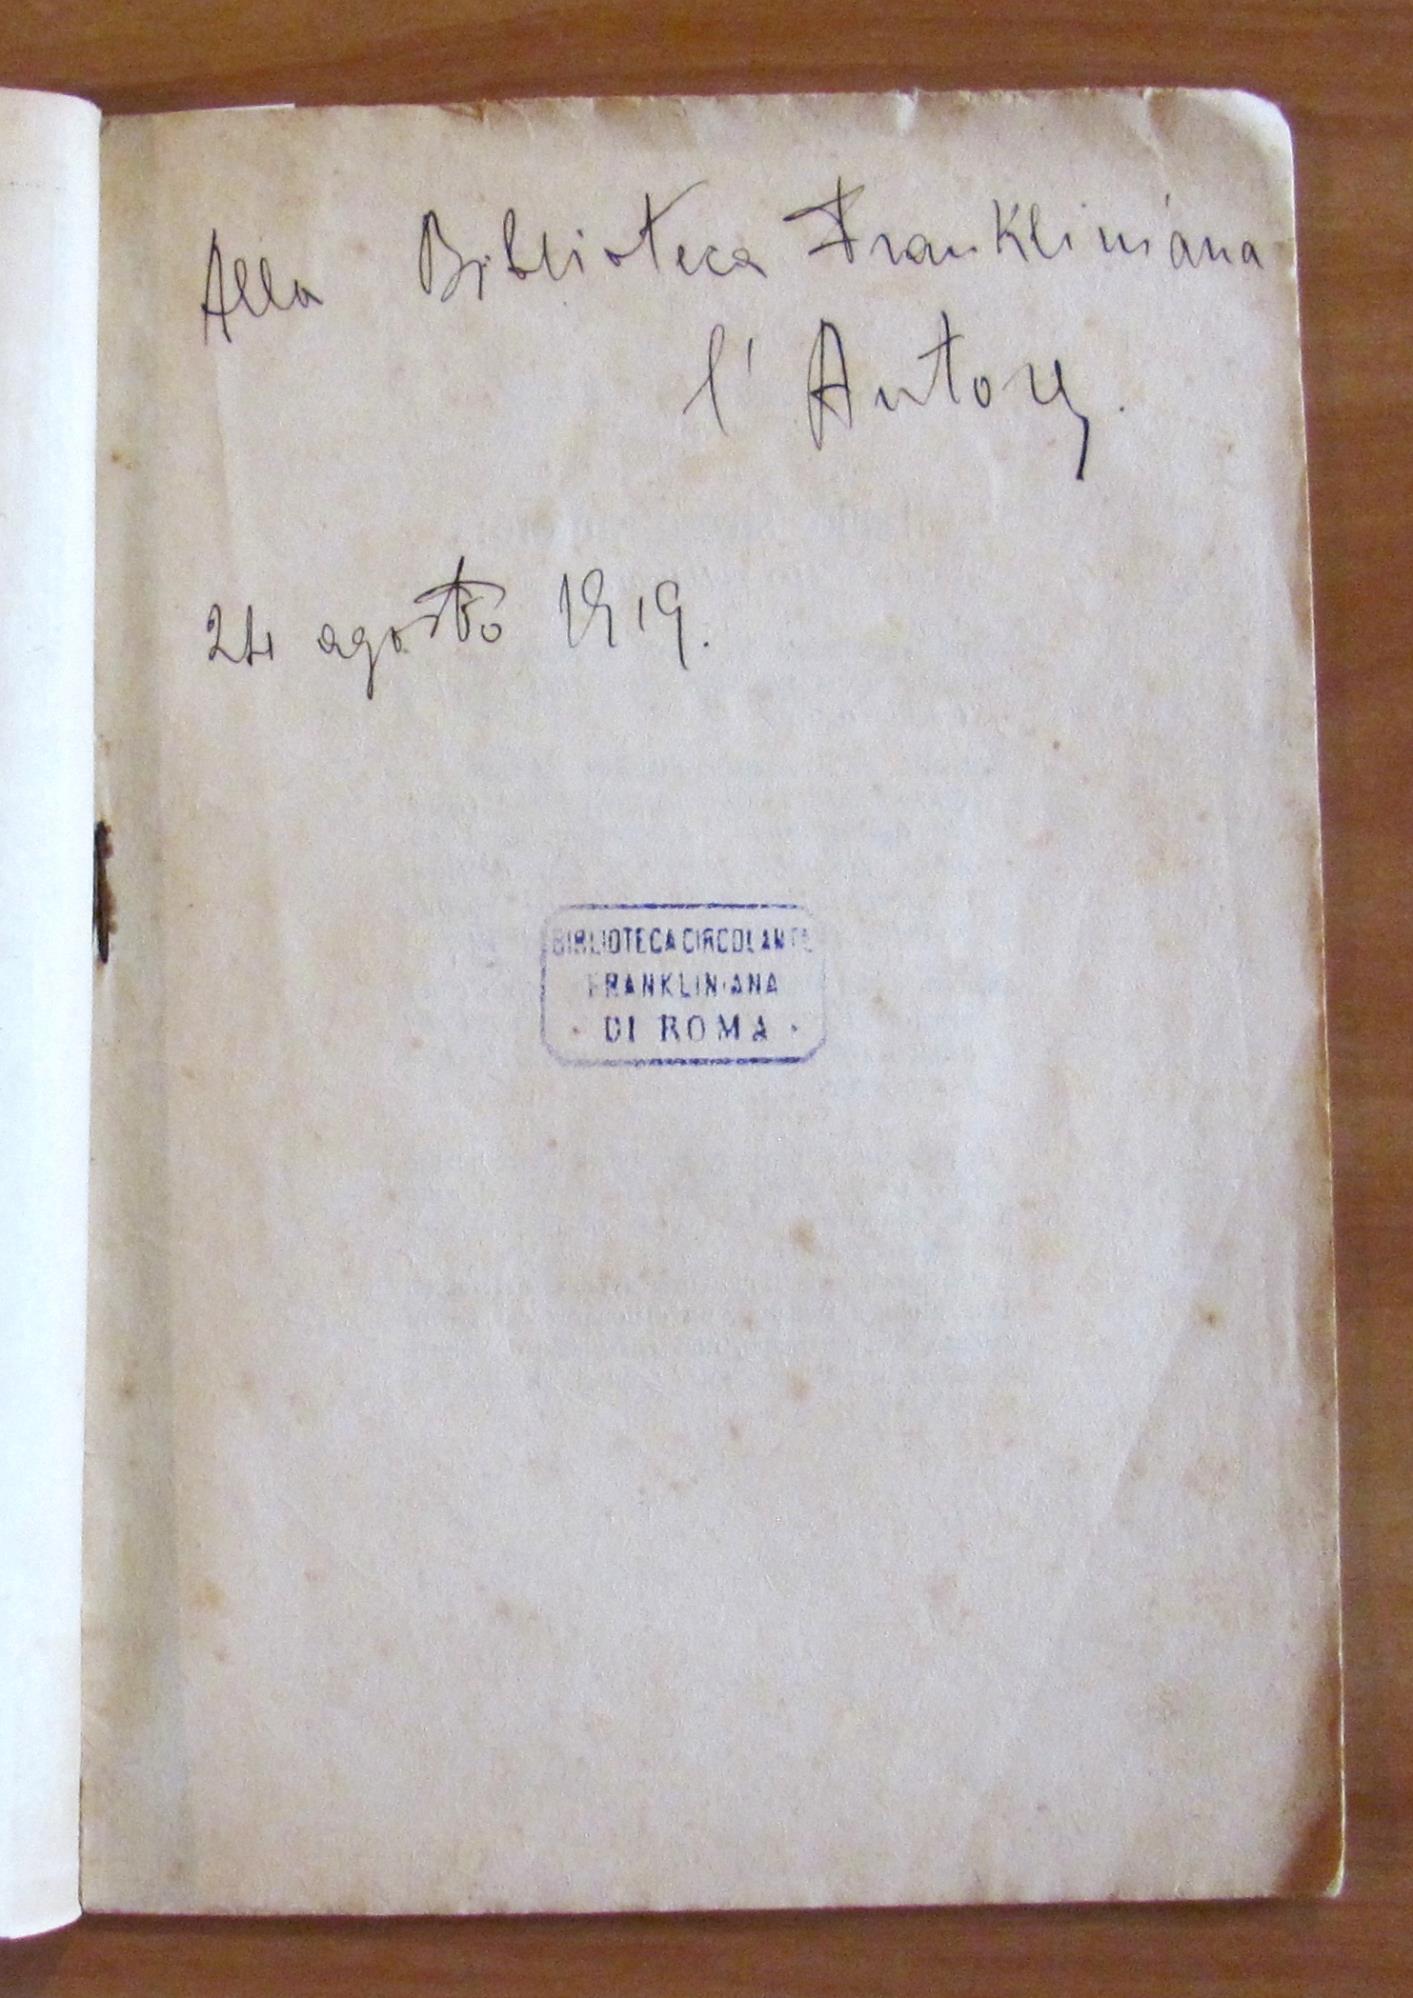 Alla Biblioteca Frankliniana
l' Autore.
24 agosto 1919.
BIBLIOTECA CIRCOLANTE
FRANKLINIANA
· DI ROMA ·